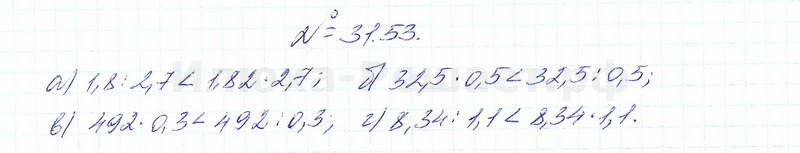 № 31.53.
а) 1,8 : 2,7 < 1,82 · 2,7; б) 32,5 · 0,5 < 32,5 : 0,5;
в) 492 · 0,3 < 492 : 0,3; г) 8,34 : 1,1 < 8,34 · 1,1.